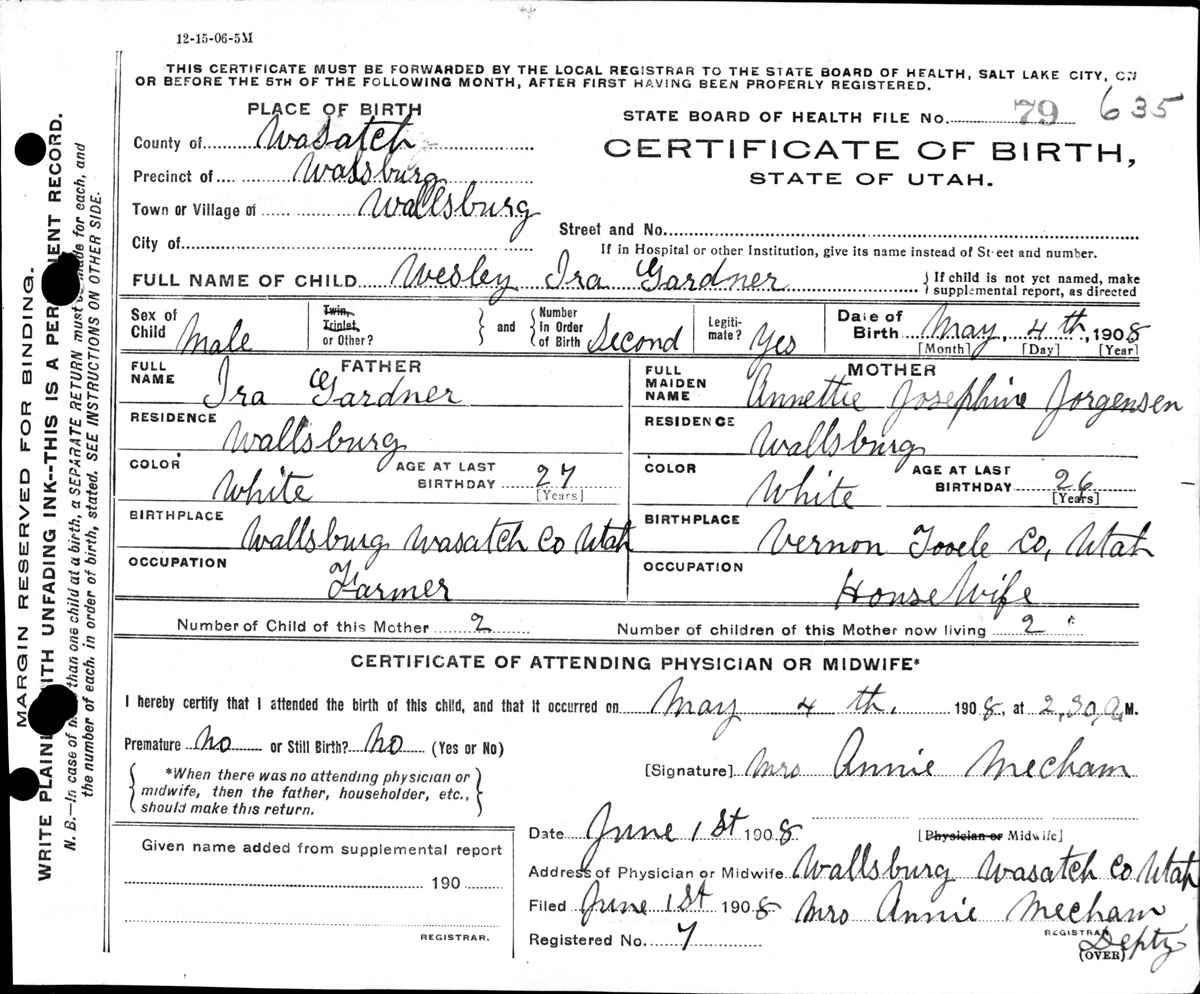 12-15-06-5M
THIS CERTIFICATE MUST BE FORWARDED BY THE LOCAL REGISTRAR TO THE STATE BOARD OF HEALTH, SALT LAKE CITY, ON
OR BEFORE THE 5TH OF THE FOLLOWING MONTH, AFTER FIRST HAVING BEEN PROPERLY REGISTERED.
PLACE OF BIRTH
STATE BOARD OF HEALTH FILE No. 79 635
County of Wasatch
CERTIFICATE OF BIRTH,
Precinct of Wallsburg
STATE OF UTAH.
Town or Village of Wallsburg
Street and No.
City of
If in Hospital or other Institution, give its name instead of Street and number.
FULL NAME OF CHILD Wesley Ira Gardner
If child is not yet named, make
supplemental report, as directed
Sex of Child Male
Twin, Triplet, or Other?
and
Number in Order of Birth Second
Legiti-mate? Yes
Date of Birth May, 4th, 1908
[Month] [Day] [Year]
FATHER
FULL NAME Ira Gardner
MOTHER
FULL MAIDEN NAME Annettie Josephine Jorgensen
RESIDENCE Wallsburg
RESIDENCE Wallsburg
COLOR White
AGE AT LAST BIRTHDAY 27
[Years]
COLOR White
AGE AT LAST BIRTHDAY 26
[Years]
BIRTHPLACE Wallsburg Wasatch Co Utah
BIRTHPLACE Vernon Tooele Co, Utah
OCCUPATION Farmer
OCCUPATION House Wife
Number of Child of this Mother 2
Number of children of this Mother now living 2
CERTIFICATE OF ATTENDING PHYSICIAN OR MIDWIFE*
I hereby certify that I attended the birth of this child, and that it occurred on May 4 th. 1908, at 2,30, A.M.
Premature No or Still Birth? No (Yes or No)
*When there was no attending physician or
midwife, then the father, householder, etc.,
should make this return.
[Signature] Mrs Annie Mecham
Date June 1st 1908
[Physician or Midwife]
Given name added from supplemental report
190
REGISTRAR.
Address of Physician or Midwife Wallsburg Wasatch Co Utah
Filed June 1st 1908 Mrs Annie Mecham
REGISTRAR
Depty
Registered No. 7
(OVER)
MARGIN RESERVED FOR BINDING.
WRITE PLAINLY WITH UNFADING INK--THIS IS A PERMANENT RECORD.
N. B.--In case of more than one child at a birth, a SEPARATE RETURN must be made for each, and
the number of each, in order of birth, stated. SEE INSTRUCTIONS ON OTHER SIDE.